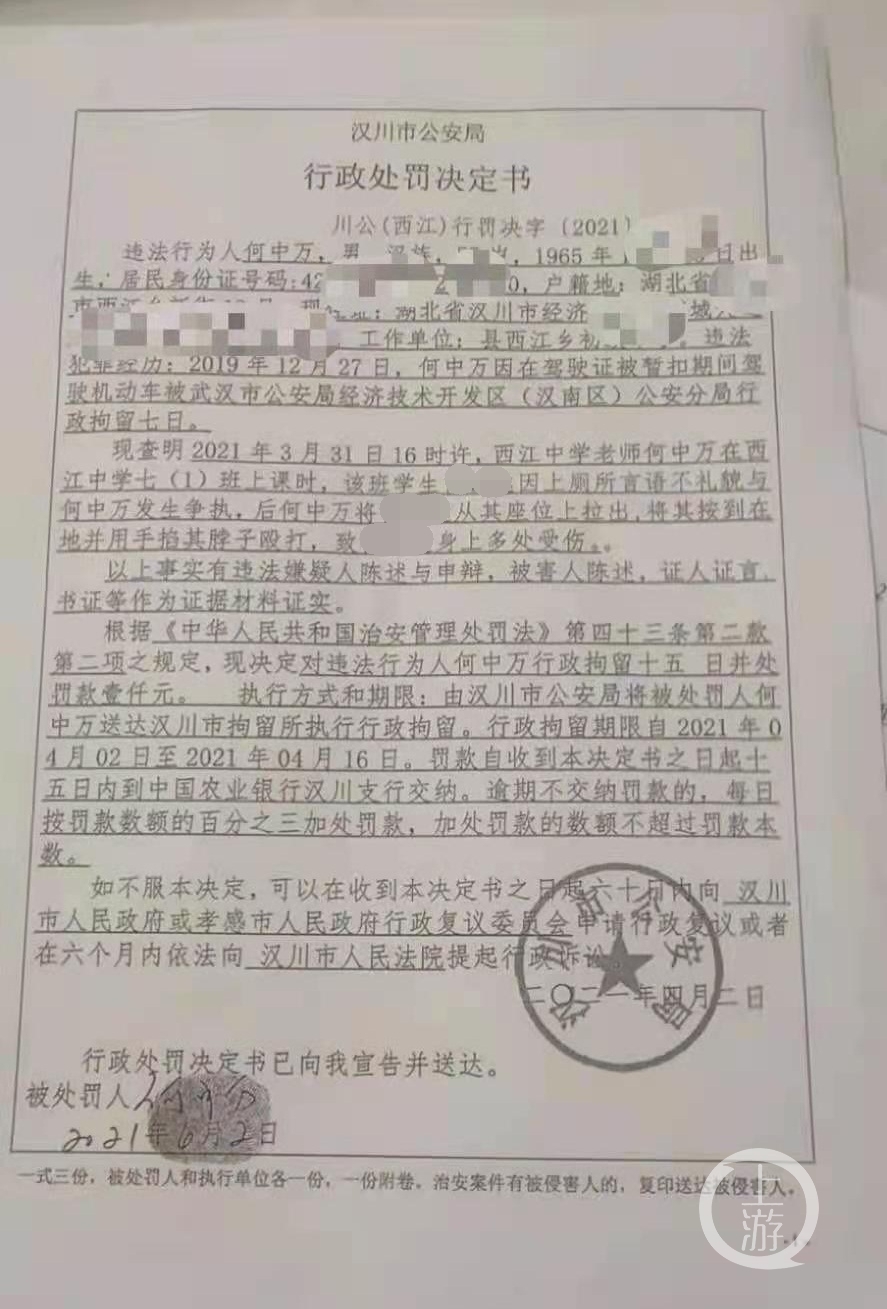 汉川市公安局
行政处罚决定书
川公(西江)行罚决字〔2021〕
违法行为人何中万，男，汉族，岁，1965年 日出
生，居民身份证号码:42 0，户籍地：湖北省
市西江乡 址：湖北省汉川市经济
工作单位：县西江乡初 。违法
犯罪经历：2019年12月27日，何中万因在驾驶证被暂扣期间驾
驶机动车被武汉市公安局经济技术开发区（汉南区）公安分局行
政拘留七日。
现查明2021年3月31日16时许，西江中学老师何中万在西
江中学七（1）班上课时，该班学生 因上厕所言语不礼貌与
何中万发生争执，后何中万将 从其座位上拉出，将其按到在
地并用手掐其脖子殴打，致 身上多处受伤。。
以上事实有违法嫌疑人陈述与申辩，被害人陈述，证人证言、
书证等作为证据材料证实。
根据《中华人民共和国治安管理处罚法》第四十三条第二款
第二项之规定，现决定对违法行为人何中万行政拘留十五 日并处
罚款壹仟元。 执行方式和期限：由汉川市公安局将被处罚人何
中万送达汉川市拘留所执行行政拘留。行政拘留期限自2021年0
4月02日至2021年04月16日。罚款自收到本决定书之日起十
五日内到中国农业银行汉川支行交纳。逾期不交纳罚款的，每日
按罚款数额的百分之三加处罚款，加处罚款的数额不超过罚款本
数。
如不服本决定，可以在收到本决定书之日起六十日内向 汉川
市人民政府或孝感市人民政府行政复议委员会申请行政复议或者
在六个月内依法向 汉川市人民法院提起行政诉讼
二〇二一年四月二日
汉川市公安局
行政处罚决定书已向我宣告并送达。
被处罚人 何中万
2021年6月2日
一式三份，被处罚人和执行单位各一份，一份附卷。治安案件有被侵害人的，复印送达被侵害人。
上游